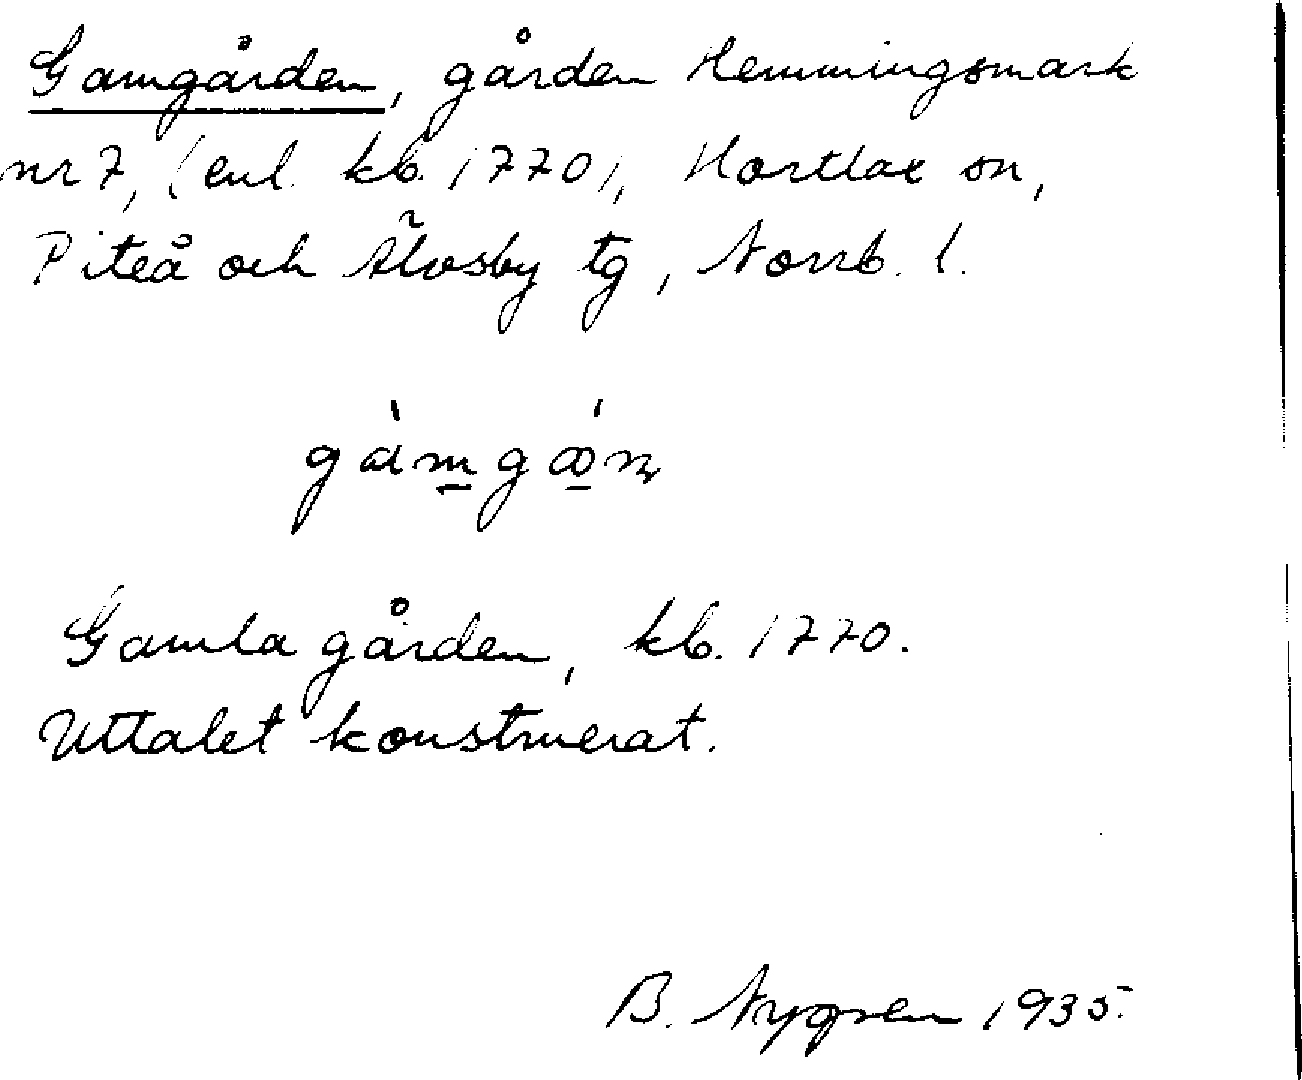 Gamgården, gården Hemmingsmark
nr 7, (enl. kb. 1770), Hortlax sn,
Piteå och Älvsby tg, Norrb. l.
Gamla gården, kb. 1770.
Uttalet konstruerat.
B. Nygren 1935.